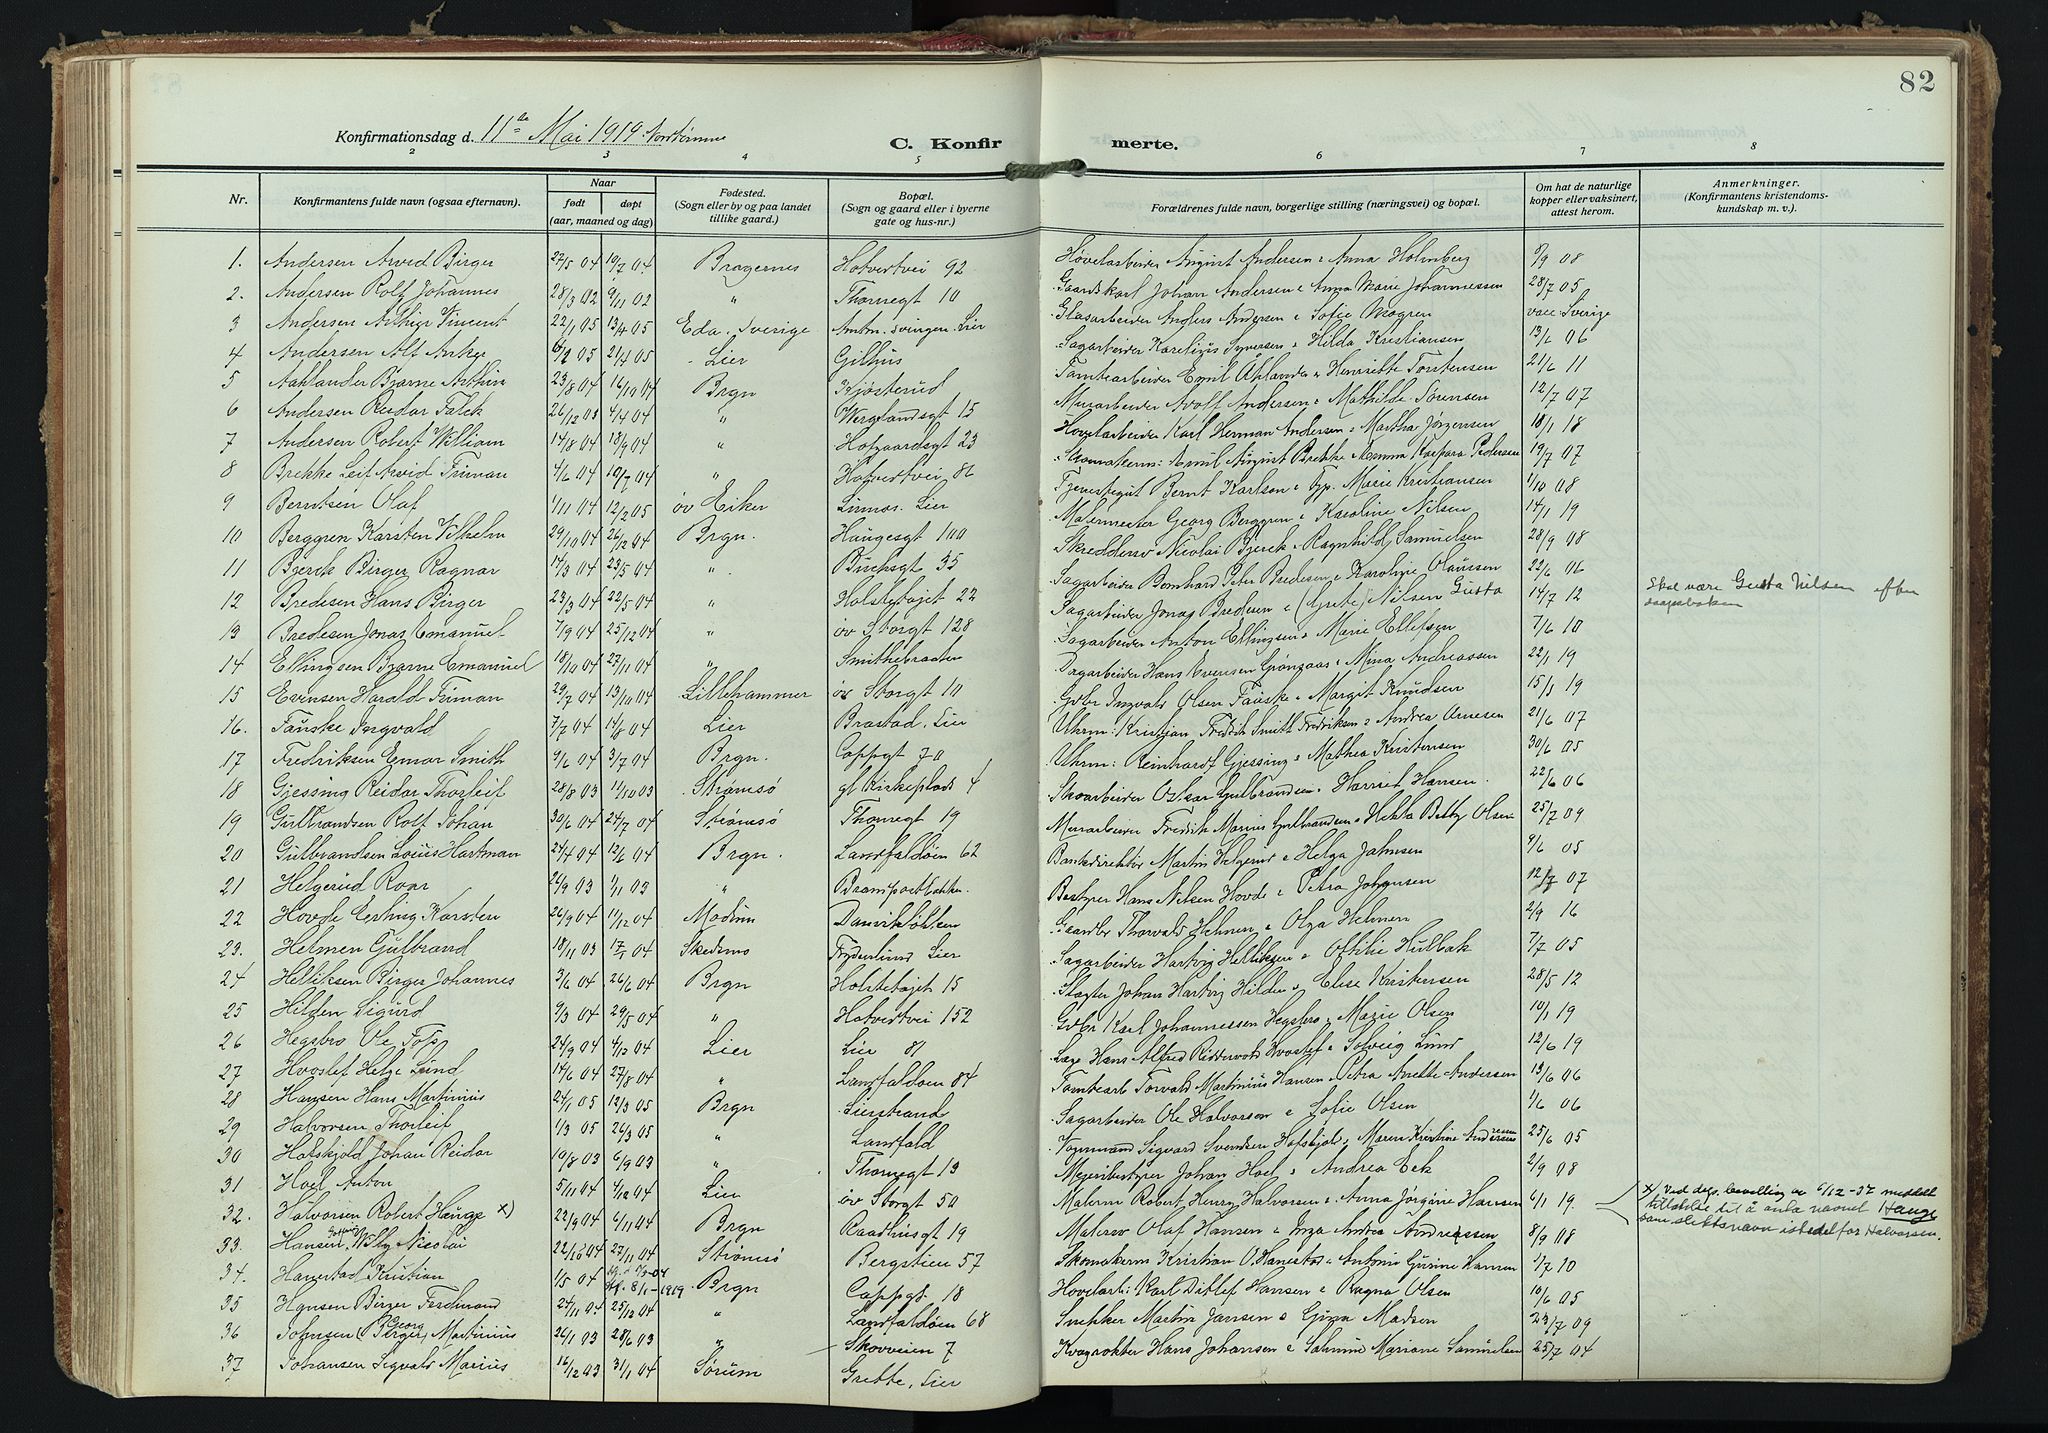 82
Konfirmationsdag d. 11te Mai 1919
C. Konfirmerte.
2 3 4 5 6 7 8
Nr.
Konfirmantens fulde navn (ogsaa efternavn).
Naar
født
døpt
(aar, maaned og dag)
Fødested.
(Sogn eller by og paa landet
tillike gaard.)
Bopæl.
(Sogn og gaard eller i byerne
gate og hus-nr.)
Forældrenes fulde navn, borgerlige stilling (næringsvei) og bopæl.
Om hat de naturlige
kopper eller vaksinert,
attest herom.
Anmerkninger.
(Konfirmantens kristendoms-
kundskap m. v.).
1. Andersen Arvid Birger 27/5 04 10/7 04 Bragernes Hotvertvei 92 Høvelarbeider August Andersen : Anna Holmberg 8/9 08
2. Andersen Rolf Johannes 28/3 02 9/11 02 " Thornegt 10 Gaardskarl Johan Andersen : Anna Marie Johannessen 28/7 05
3 Andersen Arthur Vincent 22/1 05 13/4 05 Eda. Sverige Amtm. svingen. Lier Glasarbeider Anders Andersen : Sofie Mogren vacc Sverige
4 Andersen Alf Anker 6/2 05 21/4 05 Lier Gilhus Sagarbeider Karelius Syversen : Hilda Kristiansen 13/6 06
5 Aahlander Bjarne Arthur 23/8 04 16/10 04 Brgn Kjøsterud Tomtearbeider Emil Åhlander : Henriette Torstensen 21/6 11
6 Andersen Reidar Falck 26/12 03 4/4 04 " Wergelandsgt 15 Murarbeider Adolf Andersen : Mathilde Sørensen 12/7 07
7 Andersen Robert William 14/8 04 18/9 04 " Hofgaardsgt 23 Høvelarbeider Karl Herman Andersen : Martha Jørgensen 18/1 18
8 Brekke Leif Arvid Firman 4/6 04 10/7 04 " Hotvertvei 86 Skomakerm: Emil August Brekke : Emma Kaspara Pedersen 19/7 07
9 Berntsen Olaf 1/11 04 12/2 05 øv Eiker Linnes. Lier Tjenestegut Bernt Karlsen : Tjp. Marie Kristiansen 1/10 08
10 Berggren Karsten Vilhelm 29/10 04 26/12 04 Brgn. Haugesgt 100 Malermester Georg Berggren : Karoline Nilsen 14/1 19
11 Bjerck Birger Ragnar 14/3 04 23/5 04 " Buchsgt 35 Skreddersv Nicolai Bjerck : Ragnhild Samuelsen 28/9 08
12 Bredesen Hans Birger 23/3 04 22/5 04 " Holstehøjet 22 Sagarbeider Bernhard Peter Bredesen : Karoline Olaussen 22/6 06
13 Bredesen Jonas Emanuel 7/9 04 25/12 04 " øv Storgt 128 Sagarbeider Jonas Bredesen : (Grete) Nilsen Gusta 14/7 12 Skal være Gusta Nilsen efter daapsboken
14 Ellingsen Bjarne Emanuel 18/10 04 27/11 04 " Smithebraaten Sagarbeider Anton Ellingsen : Marie Ellefsen 7/6 10
15 Evensen Harald Firman 29/7 04 13/10 04 Lillehammer øv Storgt 10 Dagarbeider Hans Evensen Grønaas : Mina Andreassen 22/1 19
16. Fauske Ingvald 7/7 04 14/8 04 Lier Brastad. Lier Gdbr Ingvald Olsen Fauske : Margit Knudsen 15/1 19
17 Fredriksen Einar Smith 9/6 04 3/7 04 Brgn. Cappgt 70 Uhrm: Kristian Fredrik Smith Fredriksen : Andrea Arnesen 21/6 07
18 Gjessing Reidar Thorleif 28/8 03 11/10 03 Strømsø gl Kirkeplads 4 Uhrm: Reinhardt Gjessing : Mathea Kristensen 30/6 05
19 Gulbrandsen Rolf Johan 30/6 04 24/7 04 Strømsø Thornegt 19 Skoarbeider Oskar Gulbrandsen : Harriet Hansen. 22/6 06
20 Gulbrandsen Louis Hartman 24/4 04 12/6 04 Brgn. Landfaldøien 62 Murarbeider Fredrik Marius Gulbrandsen : Hekla Betty Olsen 25/7 09
21 Helgerud Roar 24/9 03 1/11 03 " Bankdirektør Martin Helgerud : Helga Jahnsen 9/6 05
22 Hovde Erling Karsten 26/9 04 11/12 04 Modum Danvikløkken Bestyrer Hans Nilsen Hovde : Petra Johansen 12/7 07
23. Helmen Gulbrand 18/11 03 Skedsmo Frydenlund Lier Gaardbr Thorvald Helmen : Olga Helmen 2/9 16
24 Helliksen Birger Johannes 3/6 04 26/6 04 Brgn Holstehøjet 15 Sagarbeider Hartvig Helliksen : Ottilie Hulbak 7/7 05
25 Hilden Sigurd 9/3 04 29/5 04 " Hotvertvei 152 Slagter Johan Hartvig Hilden : Elise Kristensen 28/5 12
26 Hegsbro Ole Tofs 24/9 04 4/12 04 Lier Lier 81 Gdbr Karl Johannessen Hegsbro : Marie Olsen 10/1 19
27 Hvoslef Helge Lund 14/6 04 27/8 04 " Landfaldøen 84 Læge Hans Alfred Riddervold Hvoslef : Solveig Lund 12/6 19
28 Hansen Hans Martinius 24/1 05 12/3 05 Brgn Lierstrand Tomtearb Torvald Martinius Hansen : Petra Anette Andersen 13/6 06
29 Halvorsen Thorleif 1/3 05 26/3 05 " Landfald Sagarbeider Ole Halvorsen : Sofie Olsen 1/6 06
30 Hafskjold Johan Reidar 10/8 03 6/9 03 " Thornegt 13 Vognmand Sigvard Svendsen Hafskjold : Maren Kristine Andreassen 25/6 05
31 Hoel Anton 5/11 04 4/12 04 Lier øv Storgt 50 Meieribestyrer Johan Hoel : Andrea Eek 2/9 08
32. Halvorsen Robert Hauge x) 22/9 04 6/11 04 Brgn Raadhusgt 19 Malerm Robert Henry Halvorsen : Anna Jørgine Hansen 6/1 19. x) Ved dep. bevilling av 6/12-37 meddelt tillatelse til å anta navnet Hauge som slektsnavn istedetfor Halvorsen.
33. Hansen Willy Nicolai 22/10 04 27/11 04 Strømsø Bergstien 57 Malersv Olaf Hansen : Inga Andrea Andreassen 8/9 08
34. Hanestad Kristian 1/5 04 8/1-1919 Brgn Cappgt. 18 Skomakerm Kristian O. Hanestad : Antonie Gurine Hansen 1/7 10
35 Hansen Birger Ferdinand 24/11 04 25/12 04 " Landfaldøen 68 Høvelarb: Karl Ditlef Hansen : Ragna Olsen 10/6 05
36 Johnsen (Birger) Georg Martinius 26/1 03 28/6 03 " Skovveien 7 Snekker Martin Jansen : Gina Madsen 23/7 09
37 Johansen Sigvald Marius 16/12 03 31/1 04 Sørum Grette, Lier Kvægrøkter Hans Johansen : Salmine Mariane Samuelsen 25/7 04